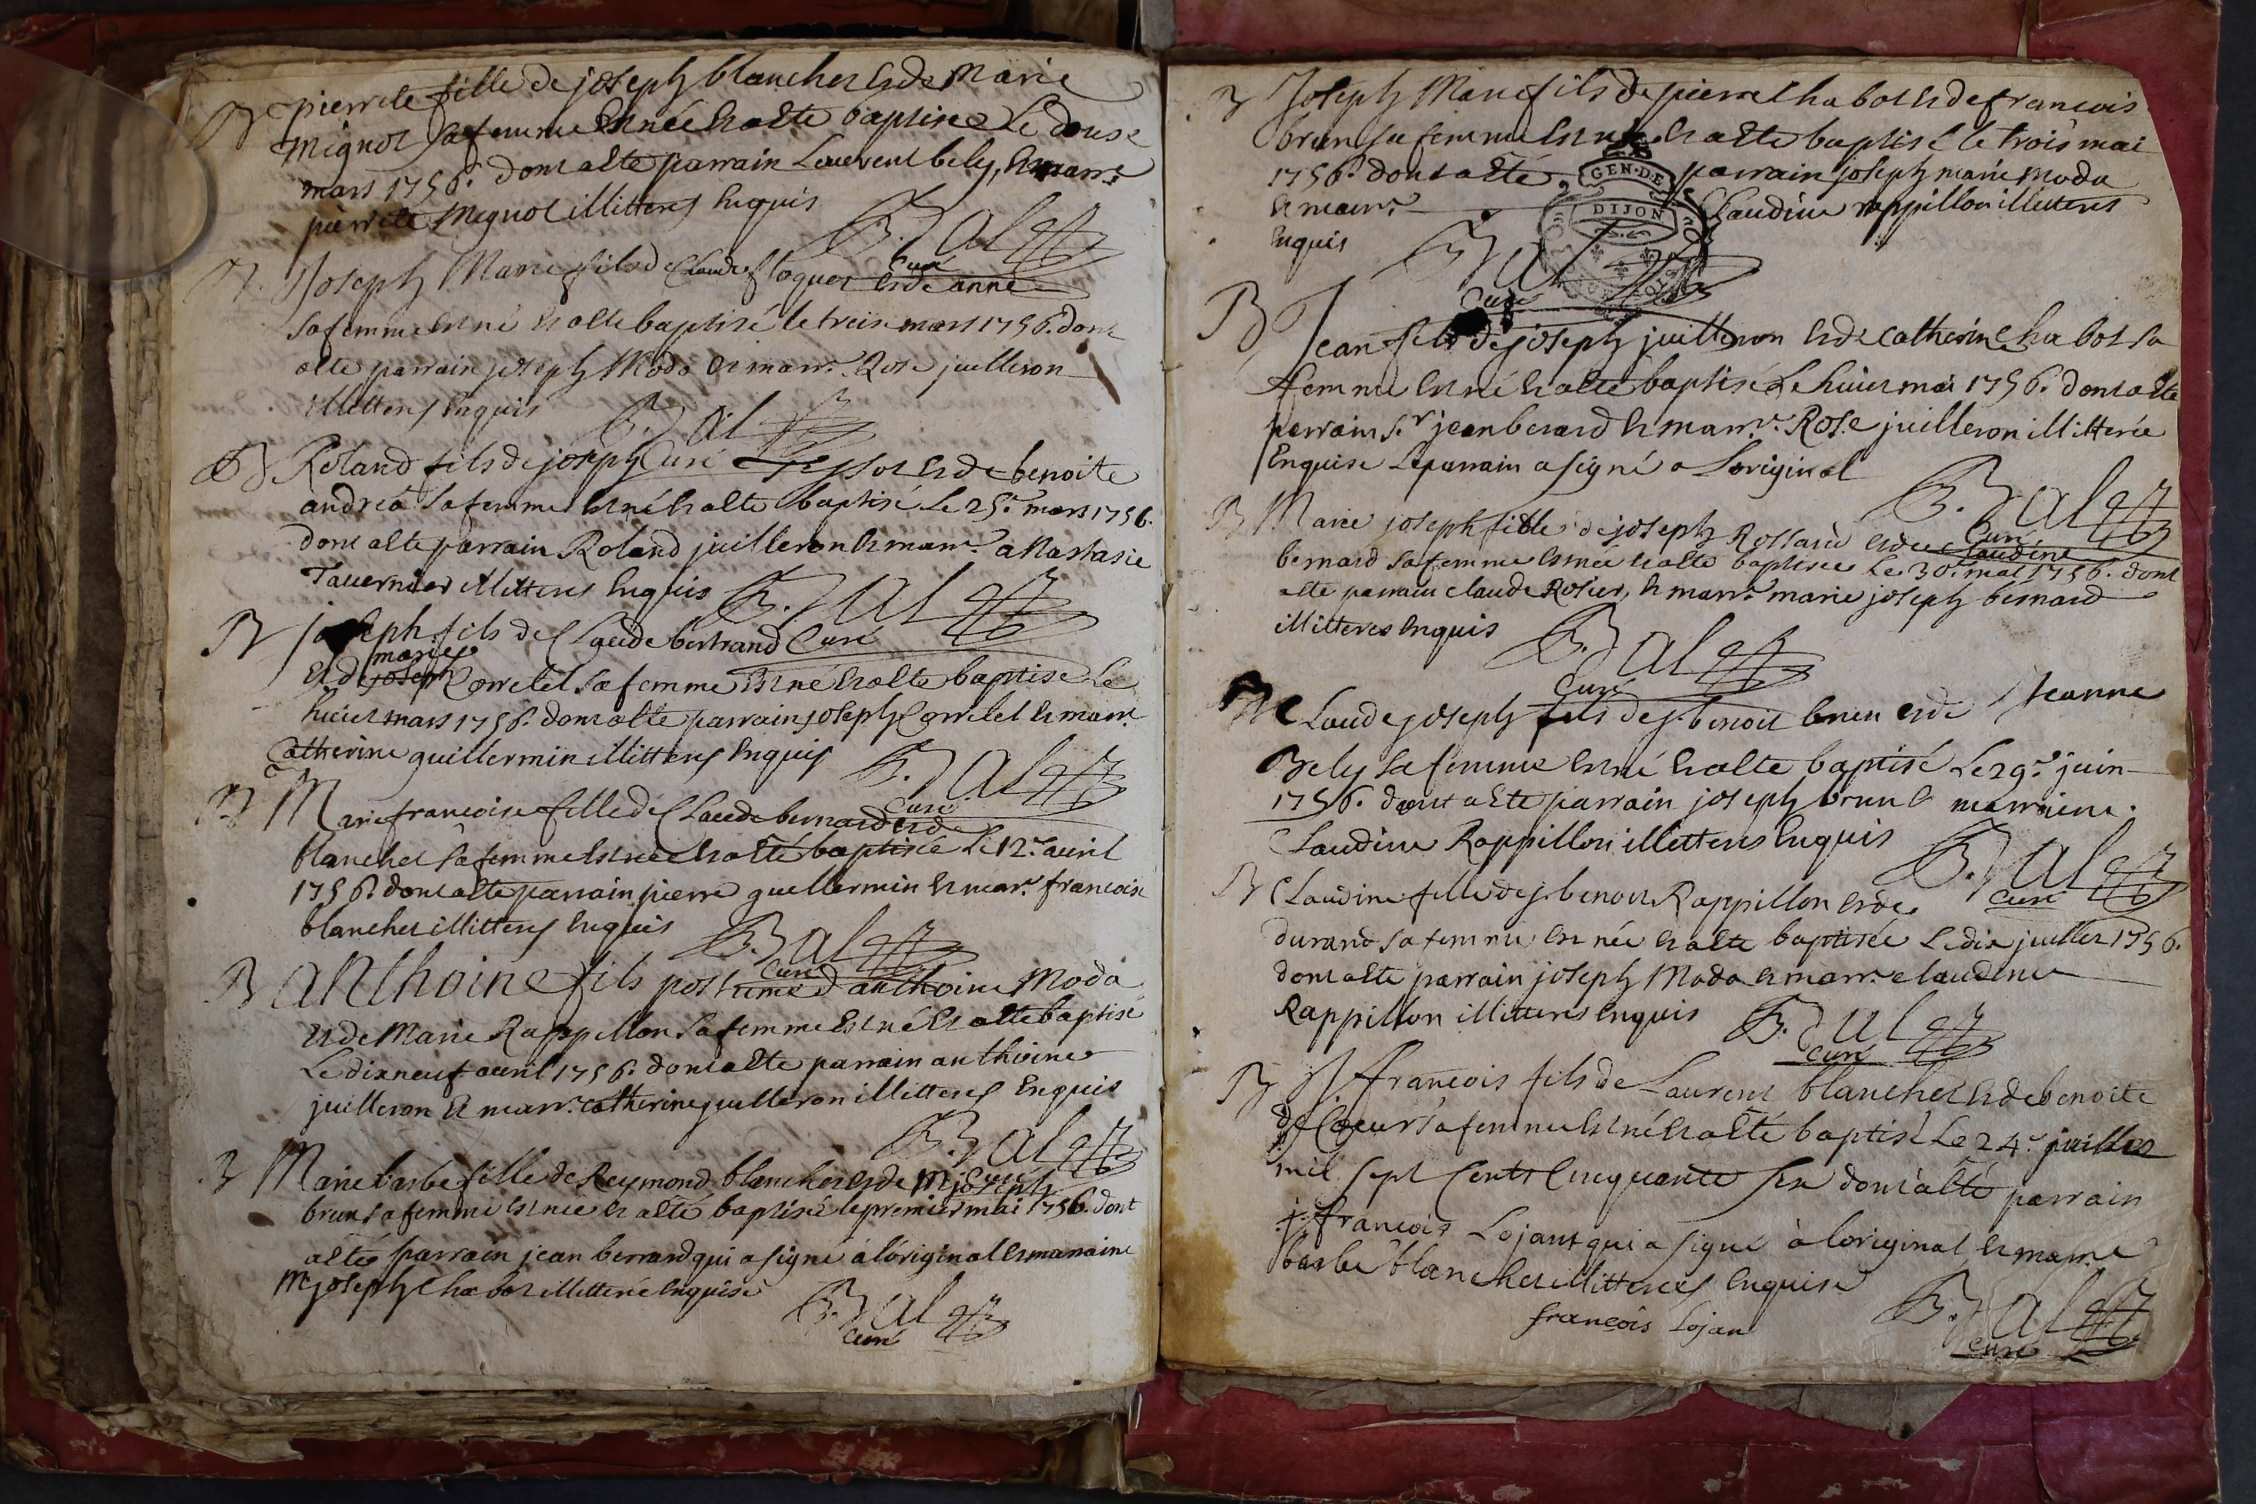 B pierrete fille de joseph blanchet et de Marie
Mignot sa femme est née et a esté baptisée Le douse
mars 1756. dont a esté parrain Laurent bely, et marr.e
pierrete Mignot illitteres Enquis
B. Dal
Curé
Joseph Marie fils de Claude floquet et de anne
sa femme est né et a esté baptisé le treise mars 1756. dont
a esté parrain joseph Modo et marr.e Rose juilleron
illitteres Enquis B. Dal
Curé
B Roland fils de joseph et de benoite
andréa sa femme est né et a esté baptisé Le 25.e mars 1756.
dont a esté parrain Roland juilleron et marr.e anastasie
Tavernier illitteres Enquis B. Dal
Curé
B joseph fils de Claude bertrand
marie
et de joseph Correlet sa femme est né et a esté baptisé Le
huiet mars 1756. dont a esté parrain joseph Correlet et marr.e
Catherine guillermin illitteres Enquis B. Dal
Curé
B Marie francoise fille de Claude bernard et de
blanchet sa femme est née et a esté baptisée Le 12.e avril
1756. dont a esté parrain pierre guillermin et marr.e francoise
blanchet illitteres Enquis B. Dal
Curé
B anthoine fils postume d'anthoine Modo
et de Marie Rappillon sa femme est né et a esté baptisé
Le dixneuf avril 1756. dont a esté parrain anthoine
juilleron et marr.e catherine juilleron illitteres Enquis
B. Dal
Curé
B Marie barbe fille de Reymond blanchet et de M joseph
brun sa femme est née et a esté baptisée le premier mai 1756. dont
a esté parrain jean berrard qui a signé a l'original et marraine
M joseph Chabot illitterée Enquise
B. Dal
Curé
B Joseph Marie fils de pierre Chabot et de francois
brun sa femme est né et a esté baptisé le trois mai
1756. dont a esté parrain joseph marie modo
et marr.e Claudine rappillon illitteres
Enquis
GEN. DE
DIJON
B. Dal
Curé
B Jean fils de joseph juilleron et de catherine Chabot sa
femme est né et a esté baptisé Le huiet mai 1756. dont a esté
parrain s.r jean berard et marr.e Rose juilleron illitterée
Enquise Le parrain a signé a Loriginal
B. Dal
Curé
B Marie joseph fille de joseph Rossand et de Claudine
bernard sa femme est née et a esté baptisée Le 30.e mai 1756. dont
a esté parrain claude Rosier, et marr.e marie joseph bernard
illitteres Enquis B. Dal
Curé
B Claude joseph fils de j. benoit brun et de Jeanne
Bely sa femme est né et a esté baptisé Le 29.e juin
1756. dont a esté parrain joseph brun et marraine
Claudine Rappillon illitteres Enquis
B. Dal
Curé
B Claudine fille de j. benoit Rappillon et de
durand sa femme est née et a esté baptisée Le dix juillet 1756.
dont a esté parrain joseph Modo et marr.e claudine
Rappillon illitteres Enquis B. Dal
Curé
B J francois fils de Laurent blanchet et de benoite
de Coeur sa femme est né et a esté baptisé Le 24.e juillet
mil sept Cents Cinquante Six dont a esté parrain
j. francois Lojant qui a signé à loriginal et marr.e
barbe blanchet illitterées Enquise
françois Lojan
B. Dal
Curé